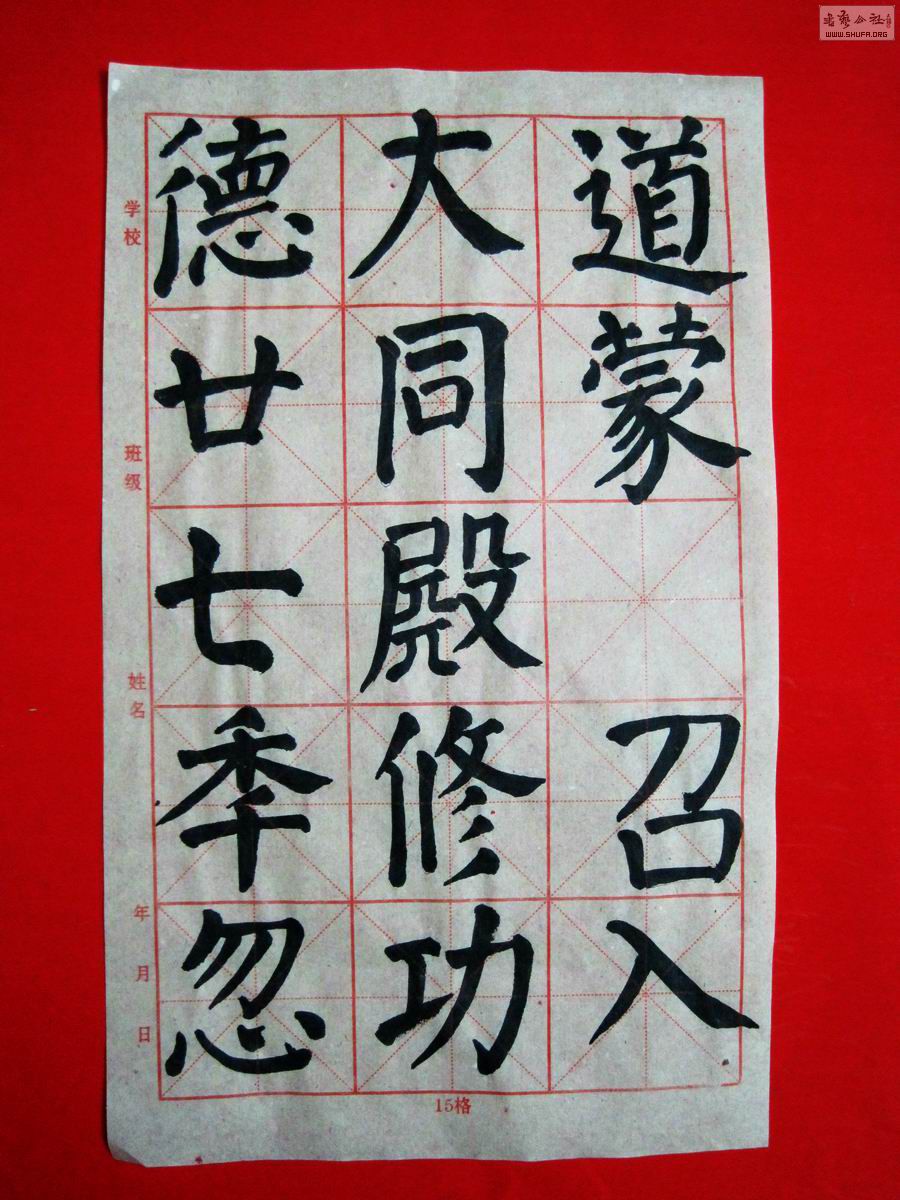 道蒙 召入
大同殿修功
德廿七秊忽
学校
班级
姓名
年 月 日
15格
书艺公社
WWW.SHUFA.ORG